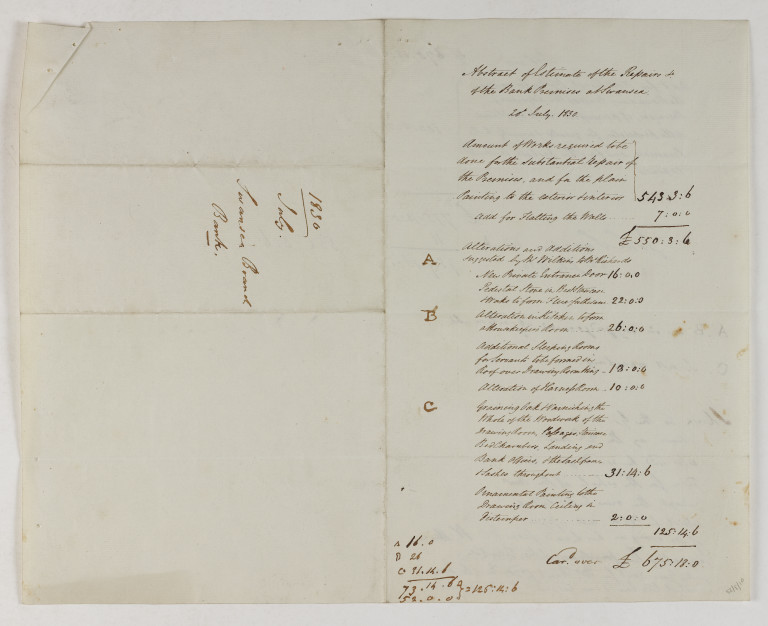 1830
July.
Swansea Branch
Bank.
Abstract of Estimate of the Repairs &
of the Bank Premises at Swansea
20th July. 1830.
Amount of Works required to be
done for the Substantial Repair of
the Premises, and for the plain
Painting to the exterior & interior 543.3:6
Add for Flatting the Walls 7:0:0
£550:3:6
Alterations and Additions
A suggested by Mr Wilkins & Mr Richards
New Private Entrance Door 16:0.0
Pedestal Stone in
22:0:0
B Alteration in Kitchen to form
a Housekeepers Room 26:0:0
Additional Sleeping Rooms
for Servants to be formed in
Roof over Drawing Room Wing 18:0:0
Alteration of Harness Room 10:0:0
C Graining Oak & Varnishing the
Whole of the Woodwork of the
Drawing Room, Passages, Stairs
Bed Chambers, Landing and
Bank Office, & the Sash frames
& Sashes throughout 31:14:6
Ornamental Painting to the
Drawing Room Ceiling in
Distemper 2:0:0
125:14:6
Card. over £675:18:0
A 16.0
B 26
C 31.14.6
73.14.6 } = 125:14:6
52.0.0